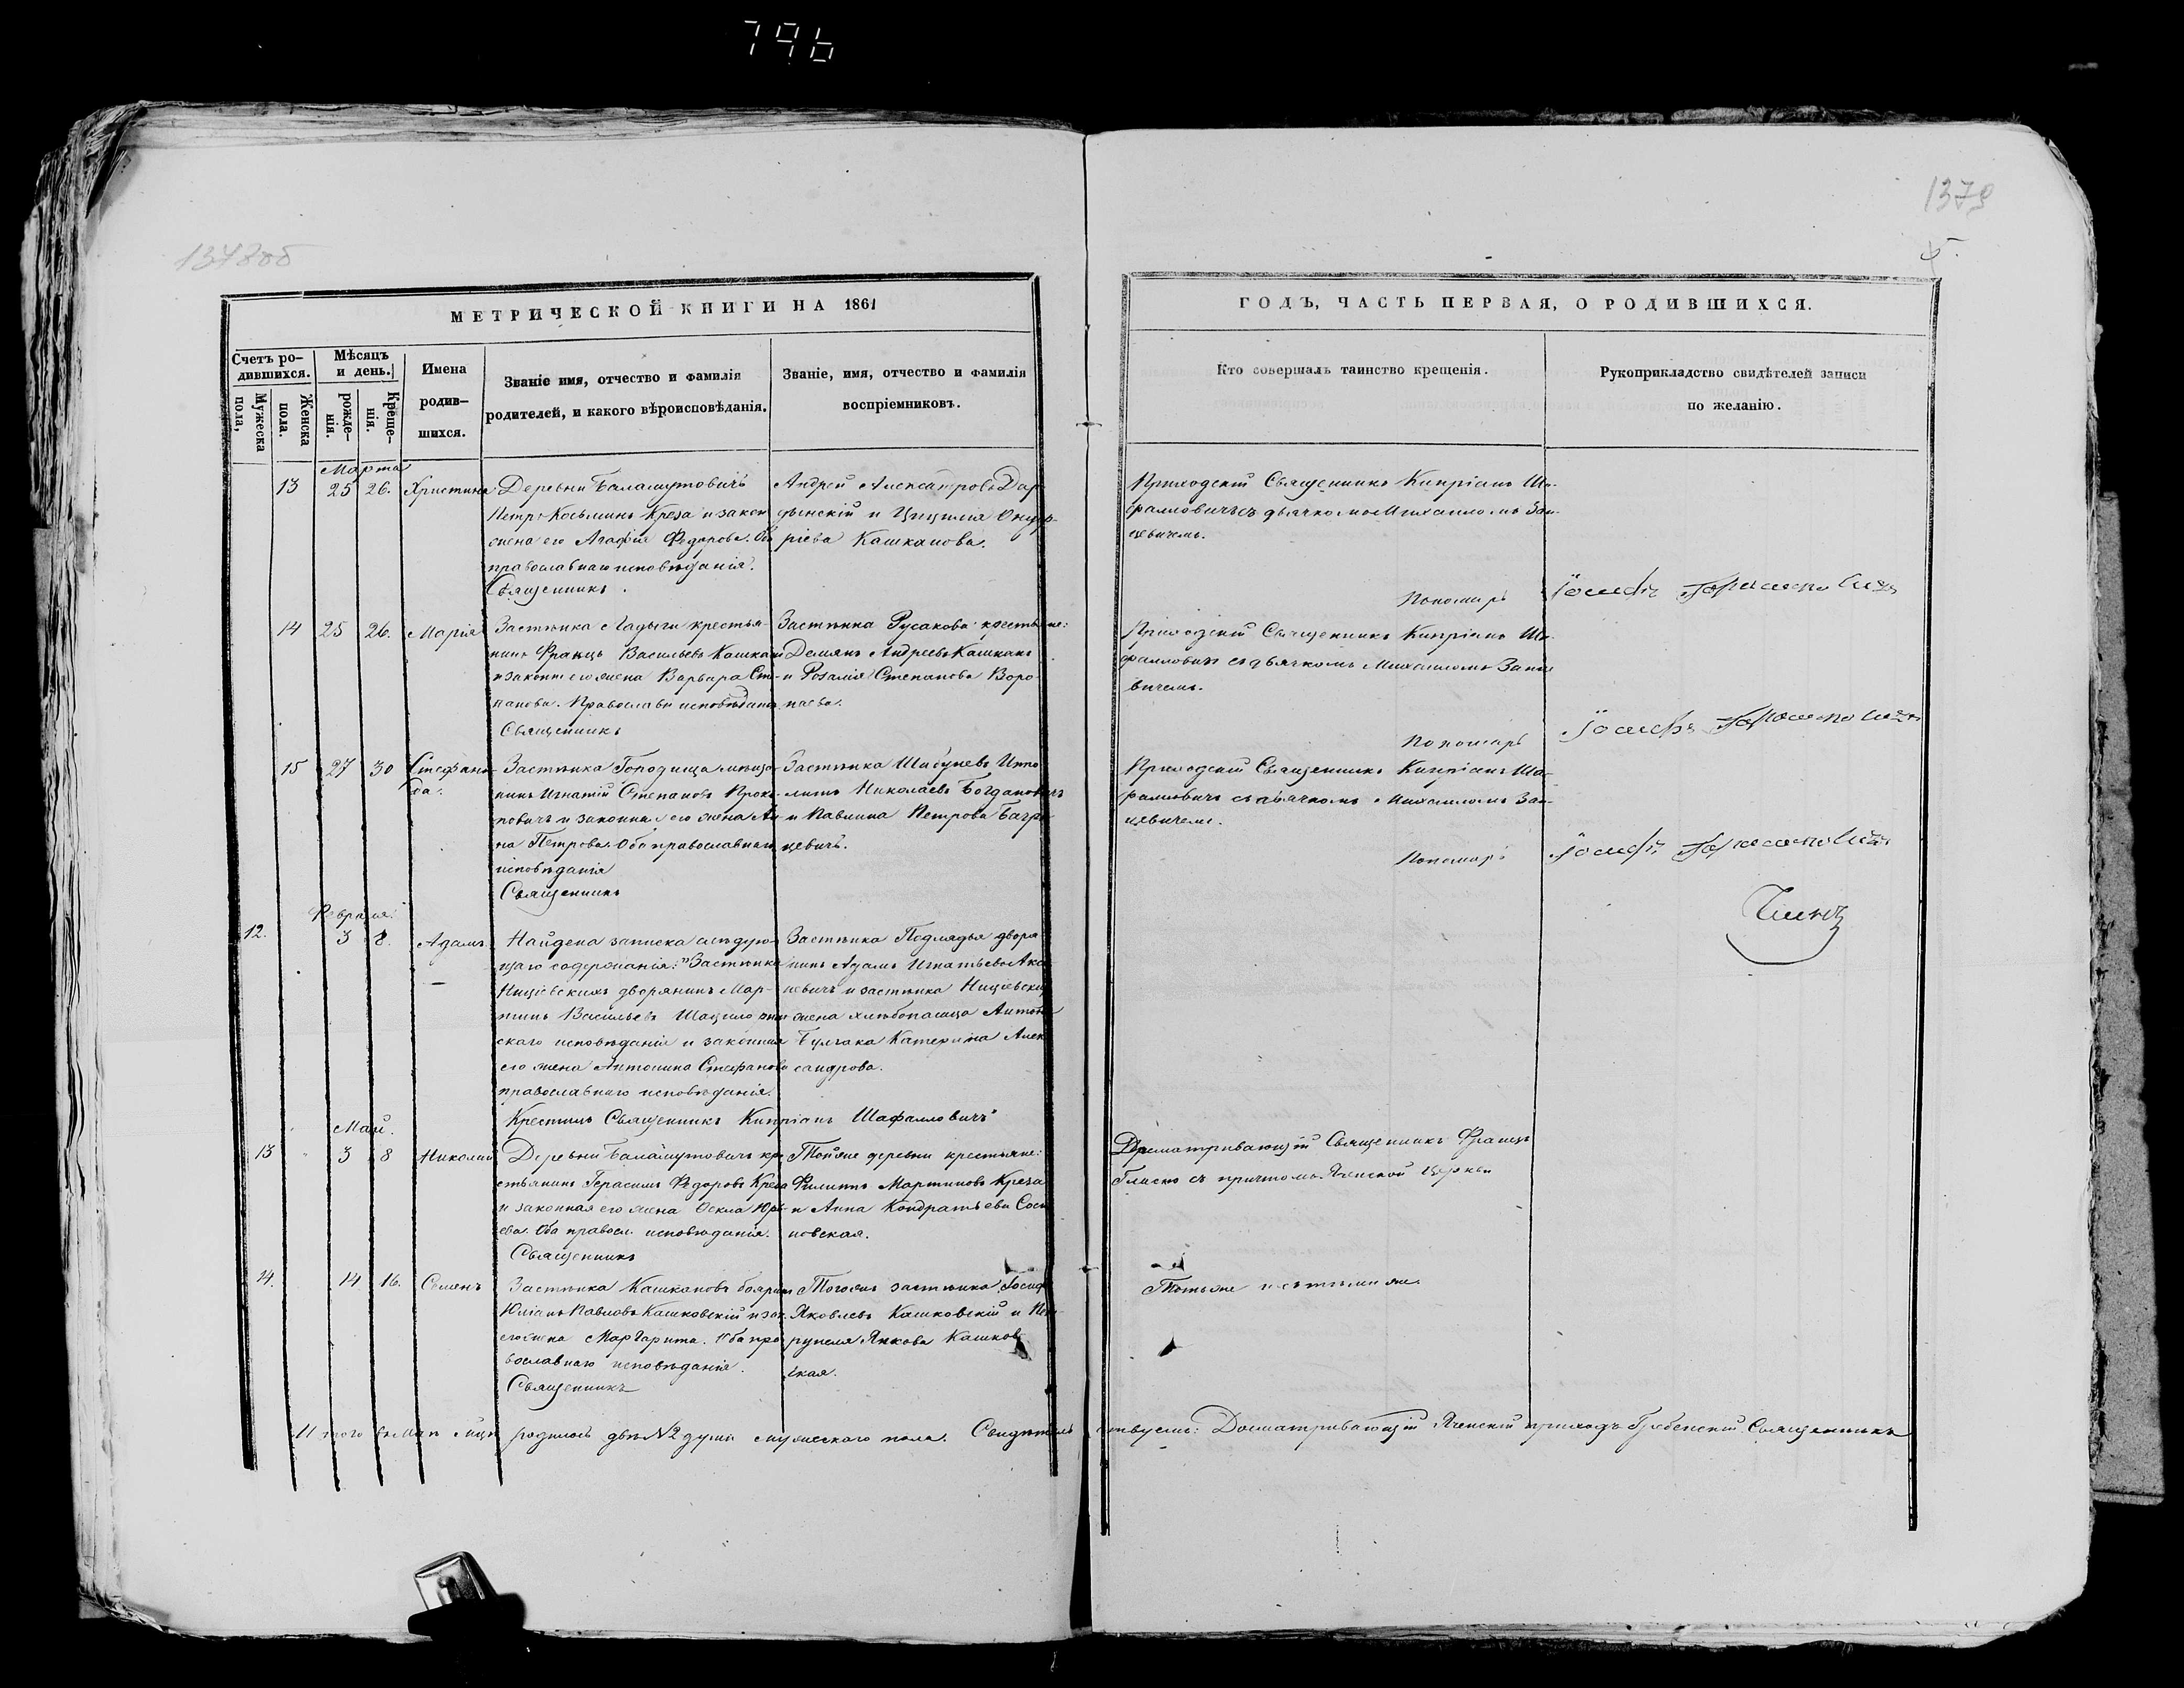 796
1379
1378об
МЕТРИЧЕСКОЙ КНИГИ НА 1861
ГОДЪ, ЧАСТЬ ПЕРВАЯ, О РОДИВШИХСЯ.
Счетъ ро-
дившихся.
Мужеска
пола,
Женска
пола.
Мѣсяцъ
и день.
рожде-
нія.
Креще-
нія.
Имена
родив-
шихся.
Званіе имя, отчество и фамилія
родителей, и какого вѣроисповѣданія.
Званіе, имя, отчество и фамилія
воспріемниковъ.
Кто совершалъ таинство крещенія.
Рукоприкладство свидѣтелей записи
по желанію.
Марта
13 25 26. Христина
Деревни Баламутовичъ
Петръ Козьминъ Креза и закон
жена его Агафія Ѳедорова. Оба
православнаго исповѣданія.
Священникъ.
Андрей Александровъ
и Цицилія
Кашканова.
Приходскій Священникъ Кипріанъ Ша-
фаловичъ съ дьячкомъ Михаиломъ Зан-
цевичемъ.
Пономарь
Іосифъ
14 25 26. Марія
Застѣнка Ладыги крестья-
нинъ Францъ Васильевъ Кашкан
и закон его жена Варвара Сте-
панова. Православн исповѣдан
Священникъ
Застѣнка Русакова крестьяне:
Демянъ Андреевъ Кашканъ
и Розалія Степанова Воро-
наева.
Приходскій Священникъ Кипріанъ Ша-
фаловичъ съ дьячкомъ Михаиломъ Занце
вичемъ.
Пономарь
Іосифъ
15 27 30 Стефани
да.
Застѣнка Городища мѣща-
нинъ Игнатій Степановъ Проко-
повичъ и законная его жена Ан-
на Петрова. Оба православнаго
исповѣданія
Священникъ
Застѣнка Шабуневъ Иппо-
литъ Николаевъ Богдановичъ
и Павлина Петрова
цевичъ.
Приходскій Священникъ Кипріанъ Ша-
фаловичъ съ дьячкомъ Михаиломъ Зан-
цевичемъ.
Пономарь
Іосифъ
Февраля.
12. 3 8. Адамъ.
Найдена записка слѣдую-
щаго содержанія: "Застѣнка
Ницієвскихъ дворянинъ Мар-
тинъ Васильевъ Шацило рим
скаго исповѣданія и законная
его жена Антонина Стефанова
православнаго исповѣданія.
Крестилъ Священникъ Кипріанъ Шафаловичъ"
Застѣнка Подлядья дворя-
нинъ Адамъ Игнатьевъ
и застѣнка
жена хлѣбопашца Антона
Булгака Катерина Алек
сандрова.
Май.
13 " 3 8 Николай
Деревни Баламутовичъ кре
стьянинъ Герасимъ Ѳедоровъ Креза
и законная его жена Ѳекла Юрь-
ева. Оба правосл. исповѣданія.
Священникъ
Той же деревни крестьяне:
Филиппъ Мартиновъ Креза
и Анна Кондратьева Сос
новская.
Досматривающій Священникъ Францъ
съ причтомъ Яченской Церкви
14. 14 16. Семенъ
Застѣнка Кашкановъ бояринъ
Юліанъ Павловъ Кашковскій и зак.
его жена Маргарита. Оба пра
вославнаго исповѣданія.
Священникъ
Того же застѣнка Іосифъ
Яковлевъ Кашковскій и Пет-
рунеля Янкова Кашков
ская.
Тотъ же и съ тѣми же.
Итого въ Маѣ мцѣ родилось двѣ №2 души мужескаго пола. Свидѣтельствуемъ: Досматривающій Яченскій приходъ Гребенскій Священникъ